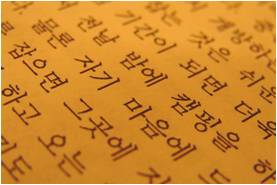 것은 쉬운
기간이 되면 더욱
전날 밤에 캠핑을 하
물론 자기 마음에 드
잡으면 그곳에
하고 오는